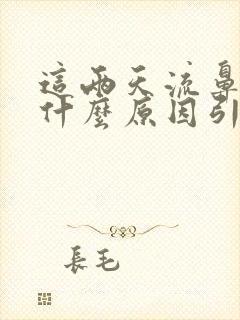 這兩天流鼻
什麼原因引
長毛